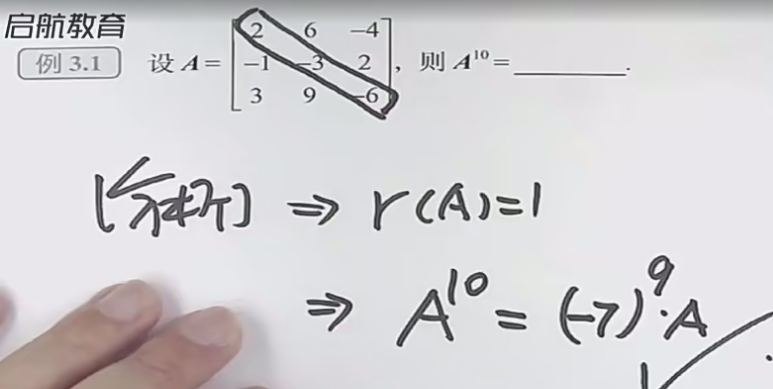 启航教育
例 3.1 设 A = [2 6 -4; -1 -3 2; 3 9 -6], 则 A¹⁰ = ________.
[分析] ⇒ r(A)=1
⇒ A¹⁰ = (-7)⁹·A